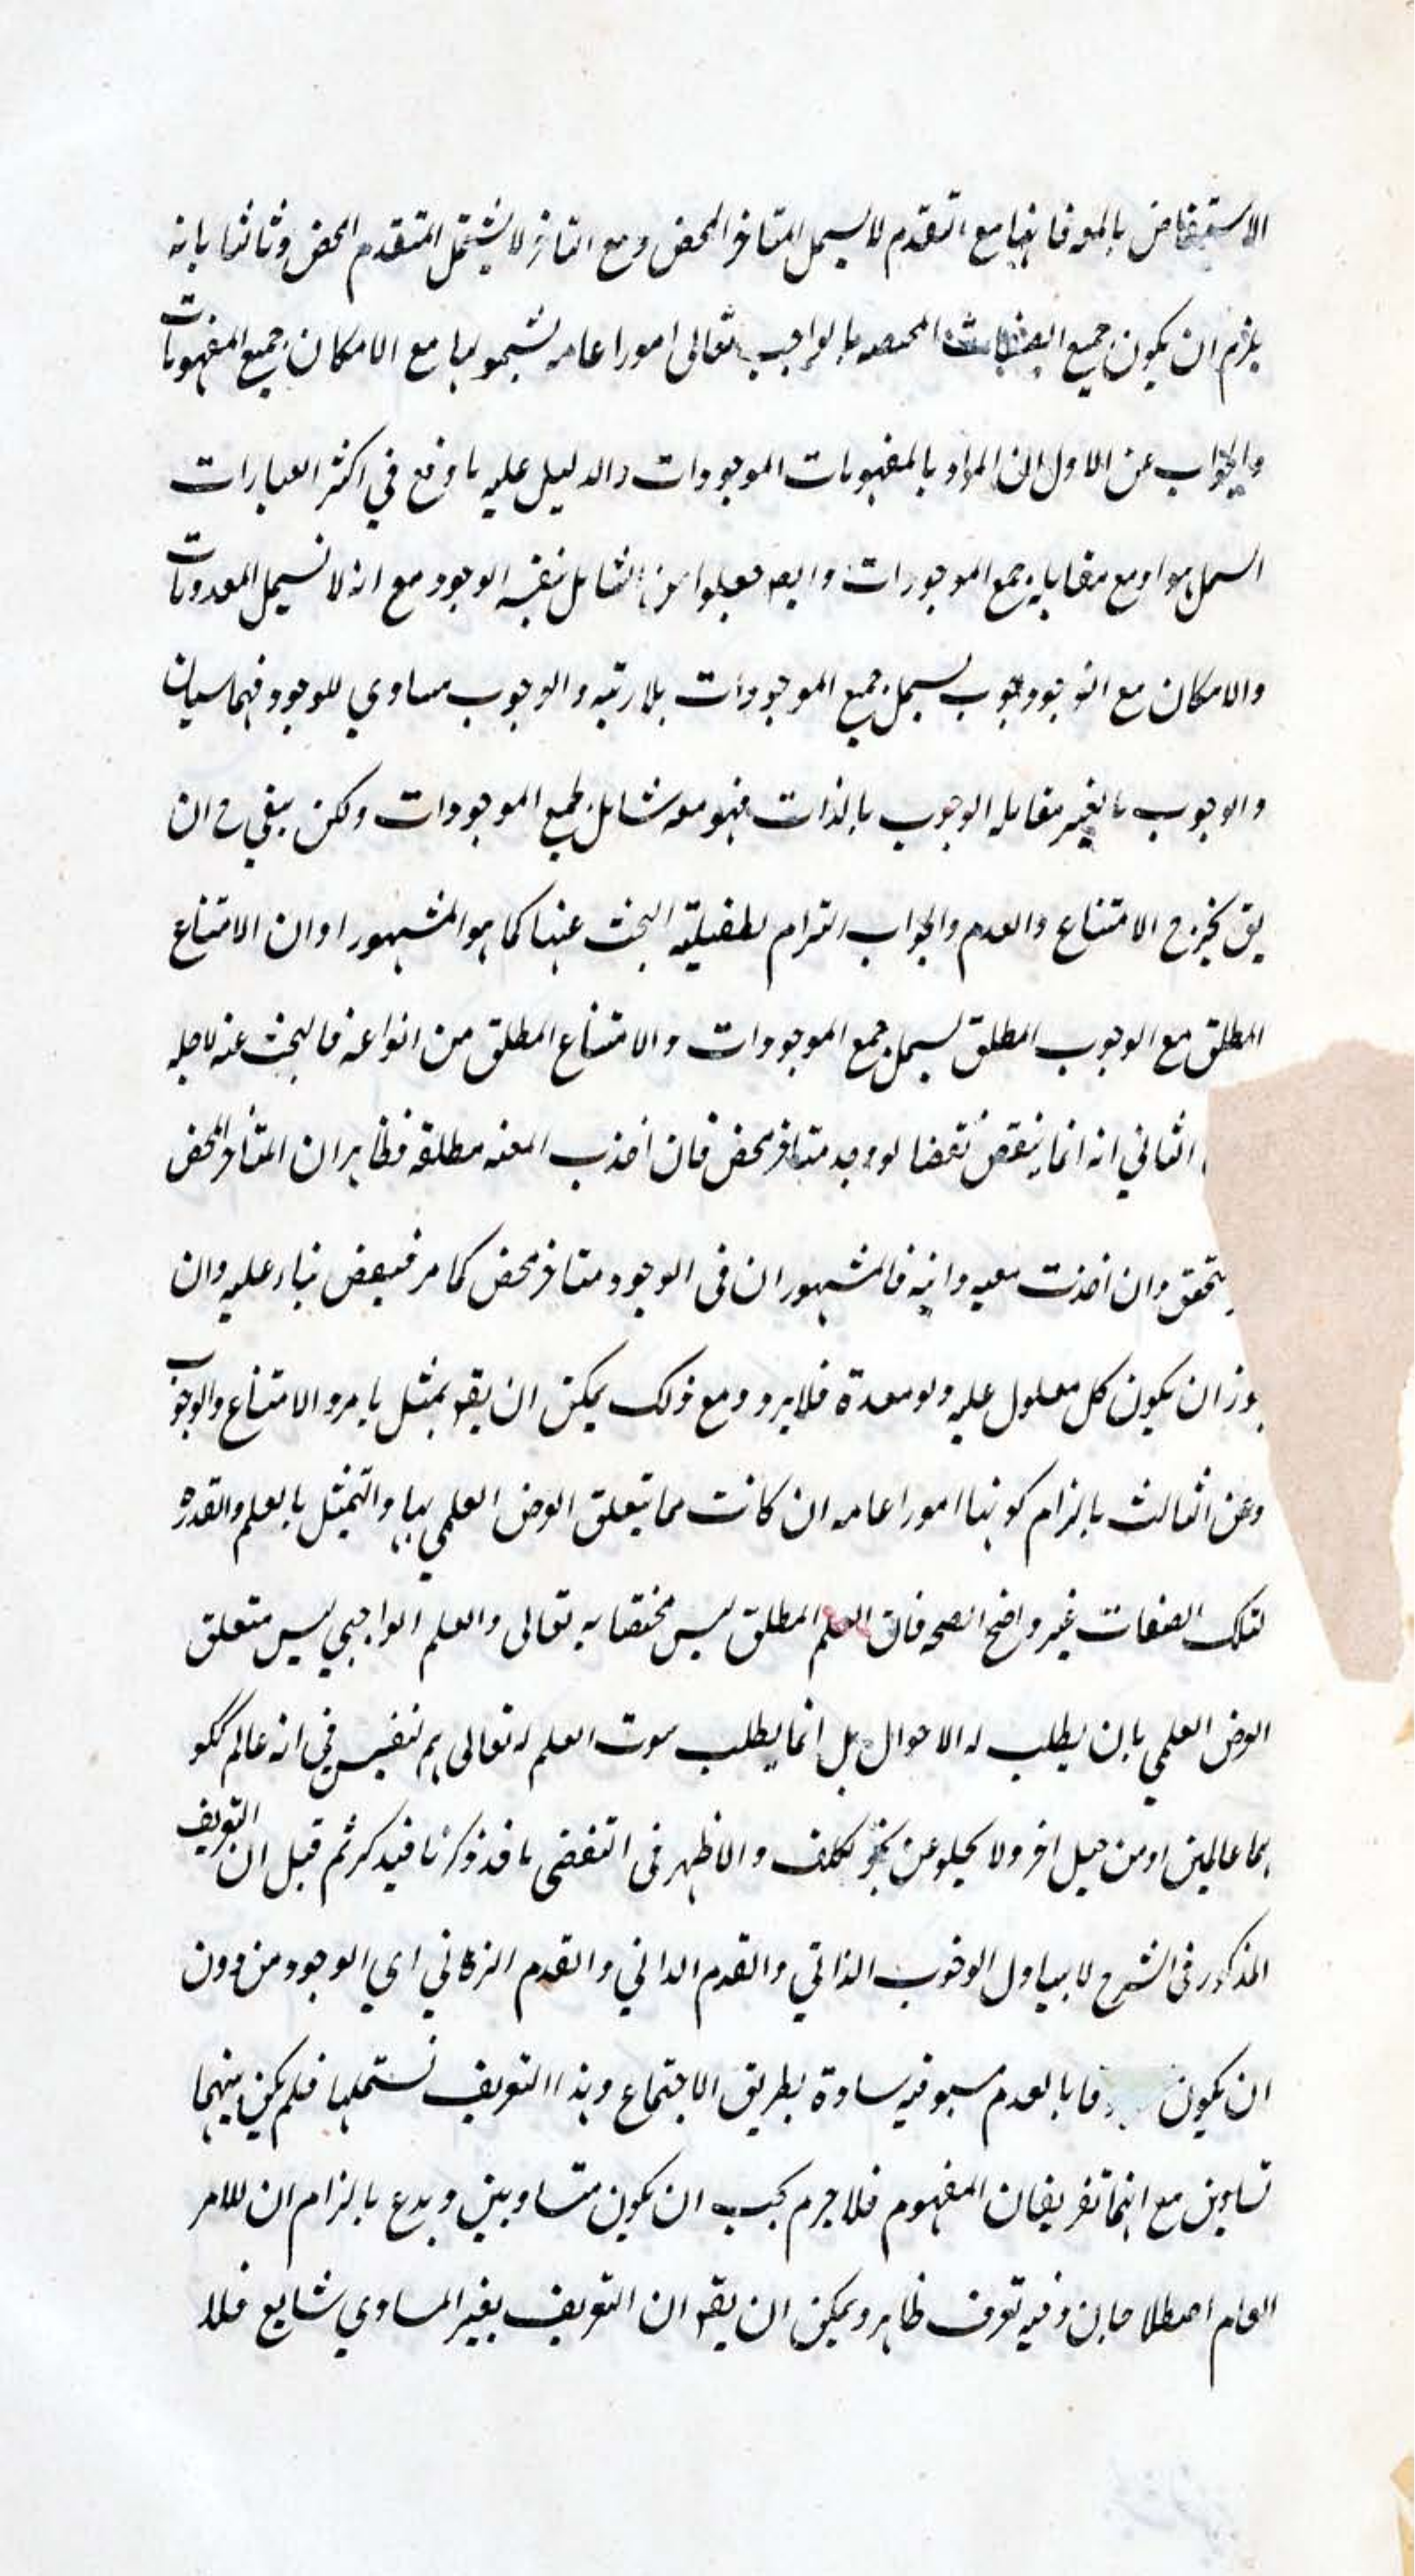 الاستقاض بالمعه فانها مع التقدم لا يسمل المتاخر المحض ومع التاخر لا يشتمل المتقدم المحض وثالثا بانه
يلزم ان يكون جميع الصفات المختصه بالواجب تعالى امورا عامه لشمولها مع الامكان جميع المفهومات
والجواب عن الاول ان المراد بالمفهومات الموجودات والدليل عليه ما وقع في اكثر العبارات
هو او مع مقابله جمع الموجودات وايضه جعلوا من الشامل بنفسه الوجود مع انه لا يسمل المعدومات
والامكان مع الوجوب يسمل جميع الموجودات بلا رتبه والوجوب مساوي للوجود فهما سيان
والوجوب بالغير مقابله الوجوب بالذات فهو معه شامل لجميع الموجودات ولكن بقي ح ان
يق يخرج الامتناع والعدم والجواب التزام لطفيلية البحث عنها كما هو المشهور او ان الامتناع
المطلق مع الوجوب المطلق يسمل جمع الموجودات والامتناع المطلق من انواعه فالبحث عنه لاجله
الثاني انه انما ينقض نقضا لو وجد متاخر محض فان اخذت المعيه مطلقه فظاهر ان المتاخر المحض
يتحقق وان اخذت معيه فالمشهور ان في الوجود متاخر محض كما مر فينقض بناء عليه وان
ان يكون كل معلول عليه ولو معدة فلا يرد ومع ذلك يمكن ان يقه بمثل ما مر والامتناع والوجوب
وعن الثالث بالزام كونها امورا عامه ان كانت مما يتعلق الغرض العلمي بها والتمثيل بالعلم والقدره
لتلك الصفات غير واضح الصحه فان العلم المطلق ليس مختصا به تعالى والعلم الواجبي ليس متعلق
الغرض العلمي بان يطلب له الاحوال بل انما يطلب ثبوت العلم له تعالى في انه عالم ككو
بما عالمين او من قبيل اخر ولا يخلو عن نحو تكلف والاظهر في التفصى ما قد ذكرنا فتذكر ثم قيل ان التعريف
المذكور في الشرح لا يتناول الوجوب الذاتي والقدم الذاتي والقدم الزماني اي الوجود من دون
ان يكون بالعدم بطريق الاجتماع وهذا التعريف تستملها فلم يكن بينهما
تساوي مع انهما تعريفان المفهوم فلا جرم يجب ان يكون متساويين ويدفع بالزام ان للامر
العام اصطلاحان وفيه تعرف ظاهر ويمكن ان يقه ان التعريف بغير المساوي شايع فلا